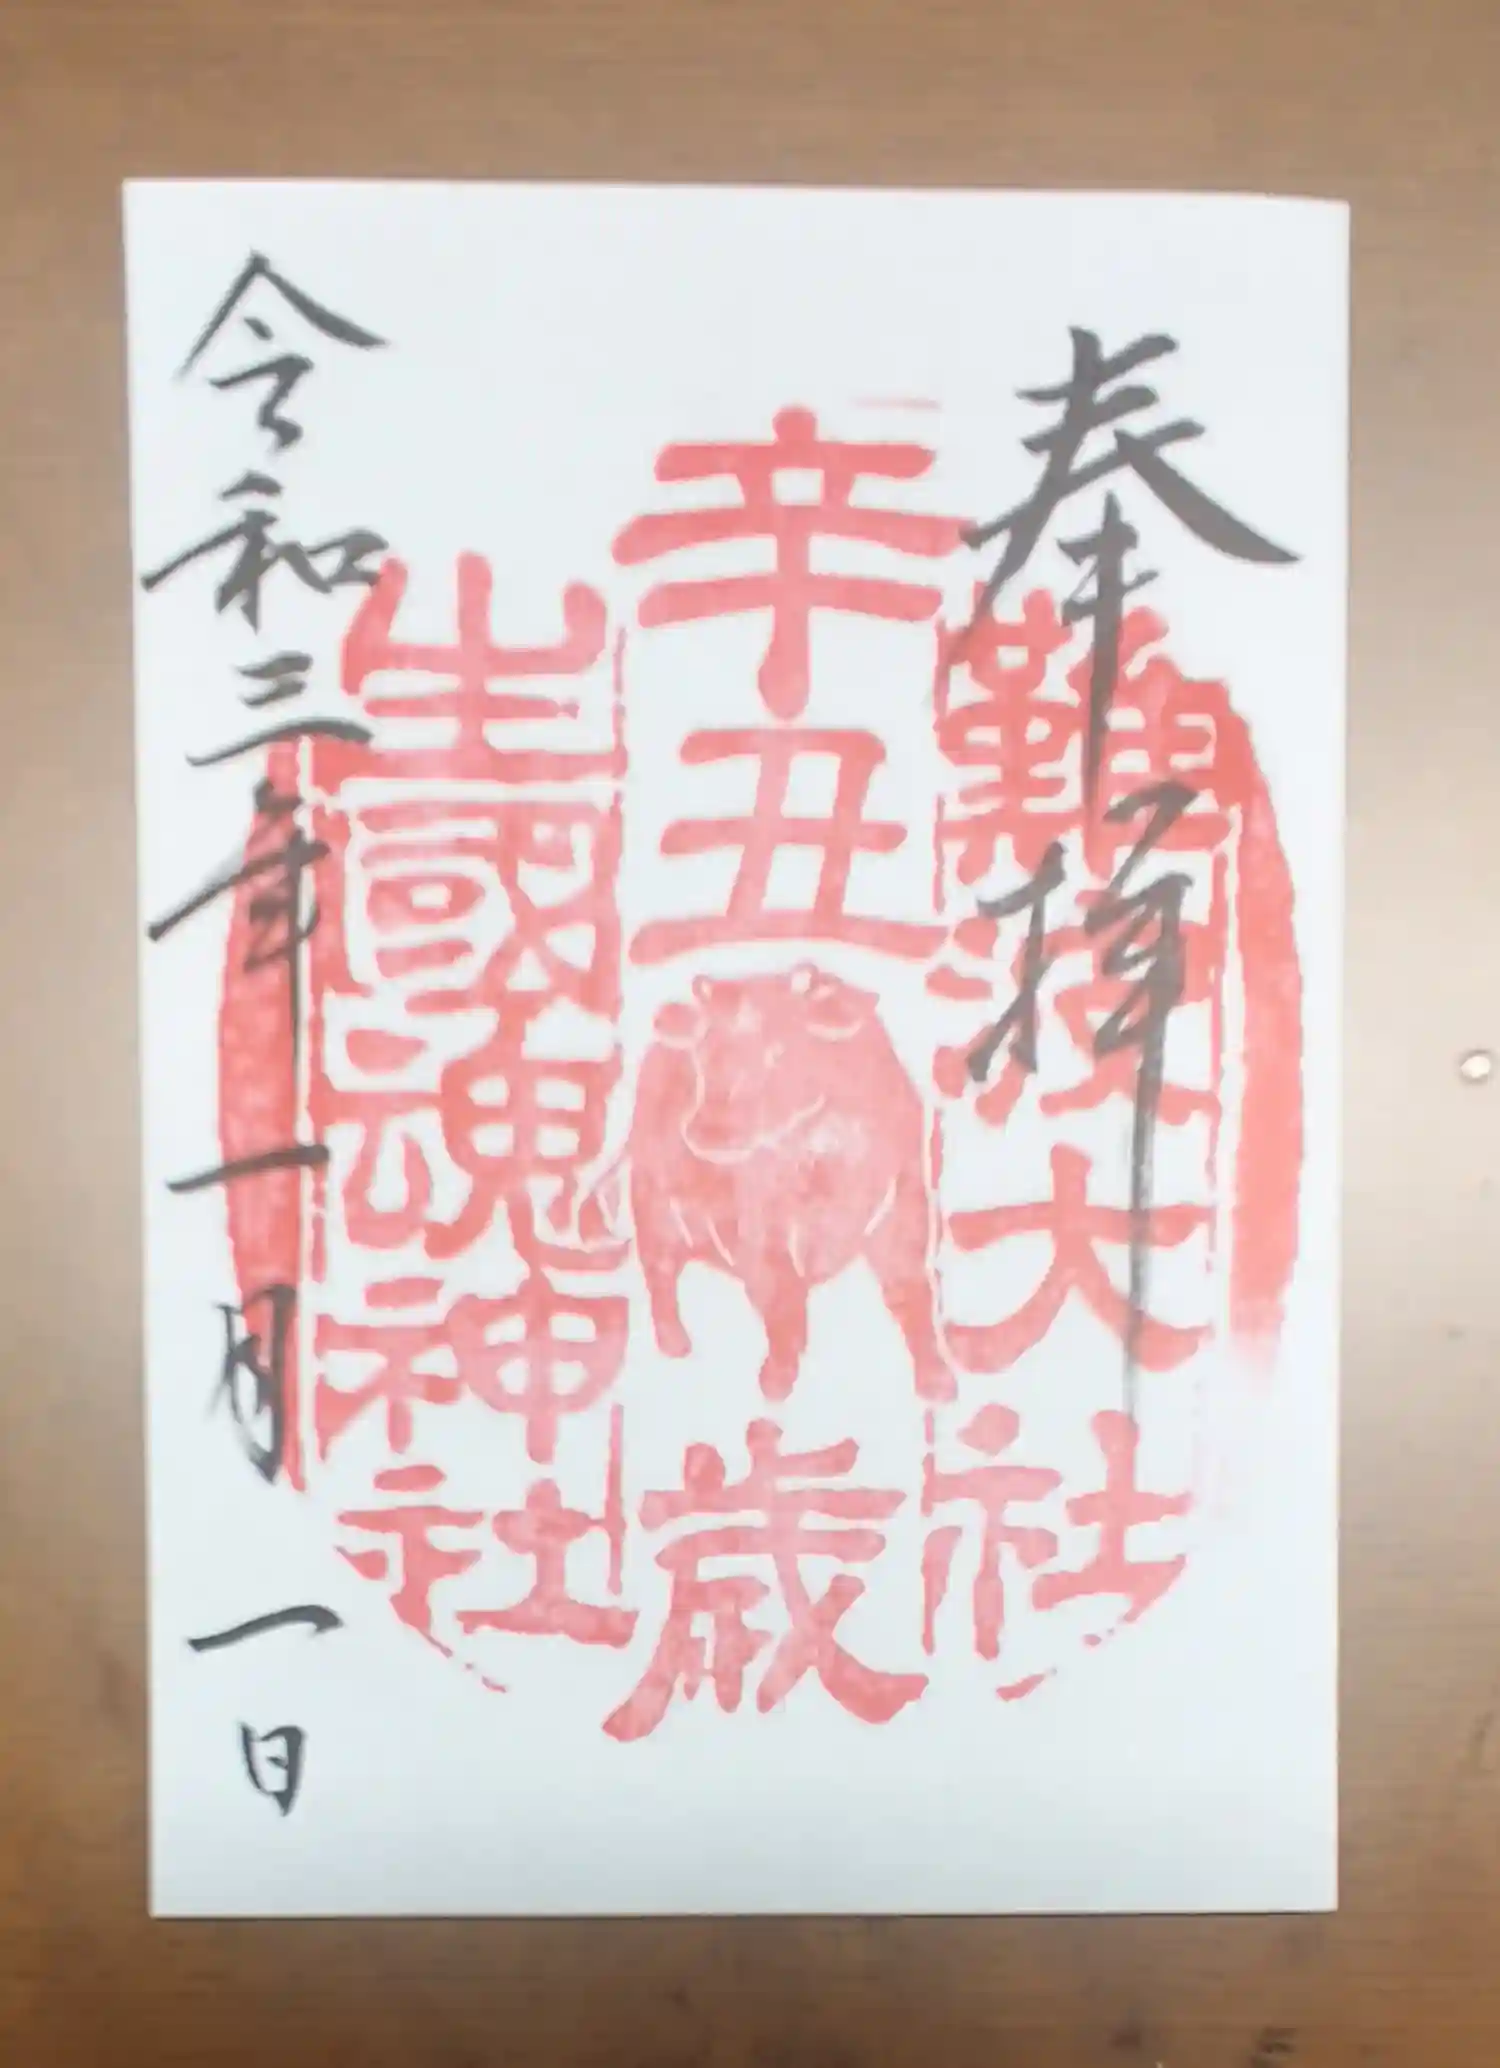 奉拝
難波大社
辛丑歳
生國魂神社
令和三年一月一日